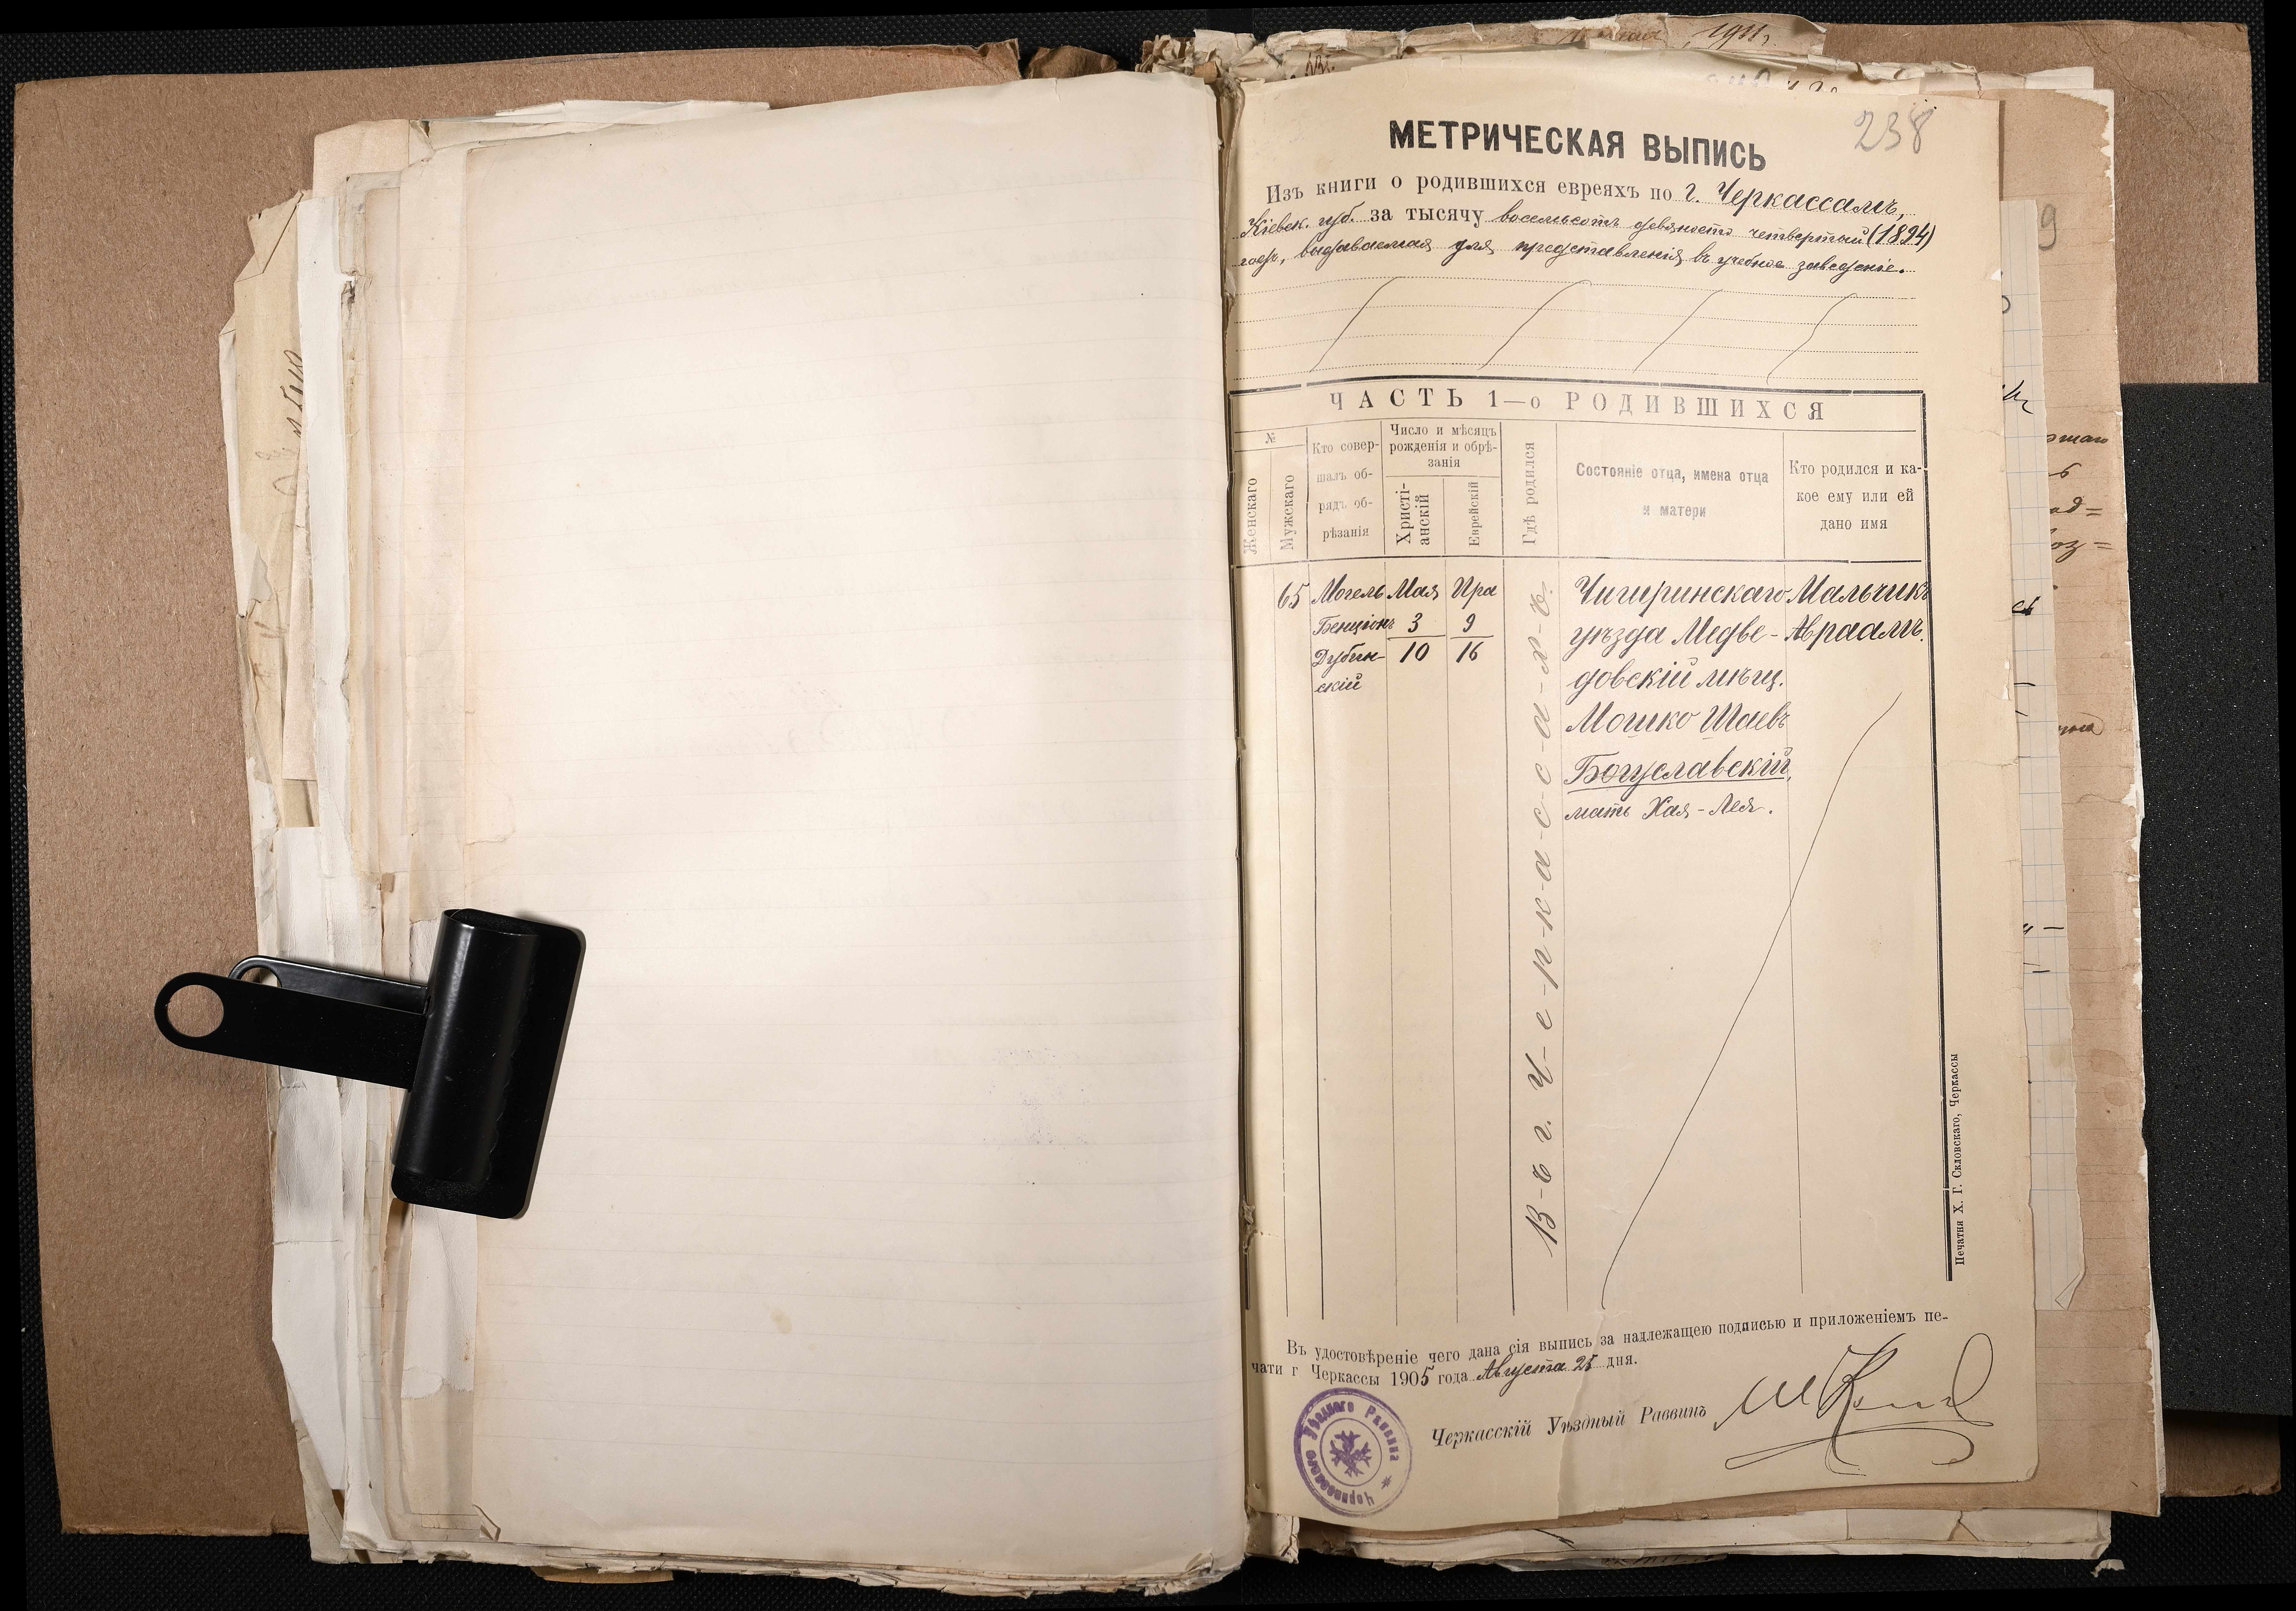 1911 г.
238
МЕТРИЧЕСКАЯ ВЫПИСЬ
Изъ книги о родившихся евреяхъ по г. Черкассамъ,
Кіевск. губ. за тысячу восемьсотъ девяносто четвертый (1894)
годъ, выдаваемая для представленія въ учебное заведеніе.
ЧАСТЬ 1—о РОДИВШИХСЯ
№
Женскаго
Мужскаго
Кто совер-
шалъ об-
рядъ об-
рѣзанія
Число и мѣсяцъ
рожденія и обрѣ-
занія
Христі-
анскій
Еврейскій
Гдѣ родился
Состояніе отца, имена отца
и матери
Кто родился и ка-
кое ему или ей
дано имя
65
Могель
Бенціонъ
Дубин-
скій
Мая
3
10
Ира
9
16
В-ъ г. Ч-е-р-к-а-с-с-а-х-ъ.
Чигиринскаго
уѣзда Медве-
довскій мѣщ.
Мошко Шаевъ
Богуславскій,
мать Хая-Лея.
Мальчикъ
Авраамъ.
Печатня Х. Г. Скловскаго, Черкассы
Въ удостовѣреніе чего дана сія выпись за надлежащею подписью и приложеніемъ пе-
чати г Черкассы 1905 года Августа 25 дня.
Черкасскій Уѣздный Раввинъ
Черкасскаго Уѣзднаго Раввина